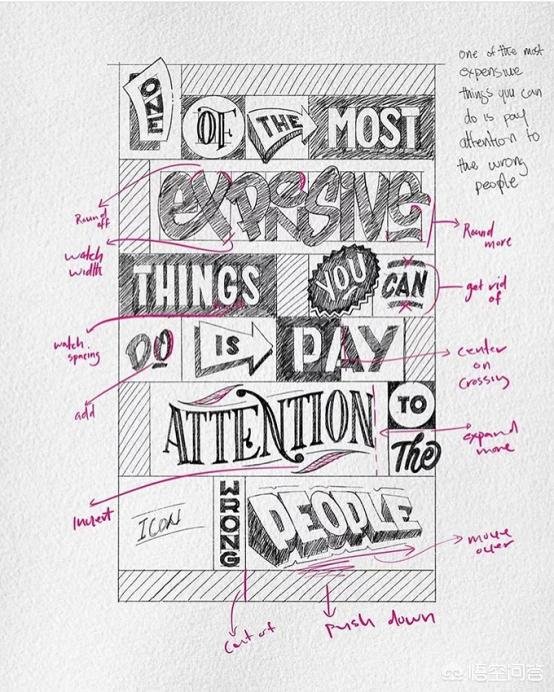 ONE OF THE MOST
EXPENSIVE
THINGS YOU CAN
DO IS PAY
ATTENTION TO
The
ICON WRONG PEOPLE
one of the most
expensive
things you can
do is pay
attention to
the wrong
people
Round
off
watch
width
watch
spacing
add
Invert
Round
more
get rid
of
center
on
crossing
expand
more
move
over
push down
悟空问答